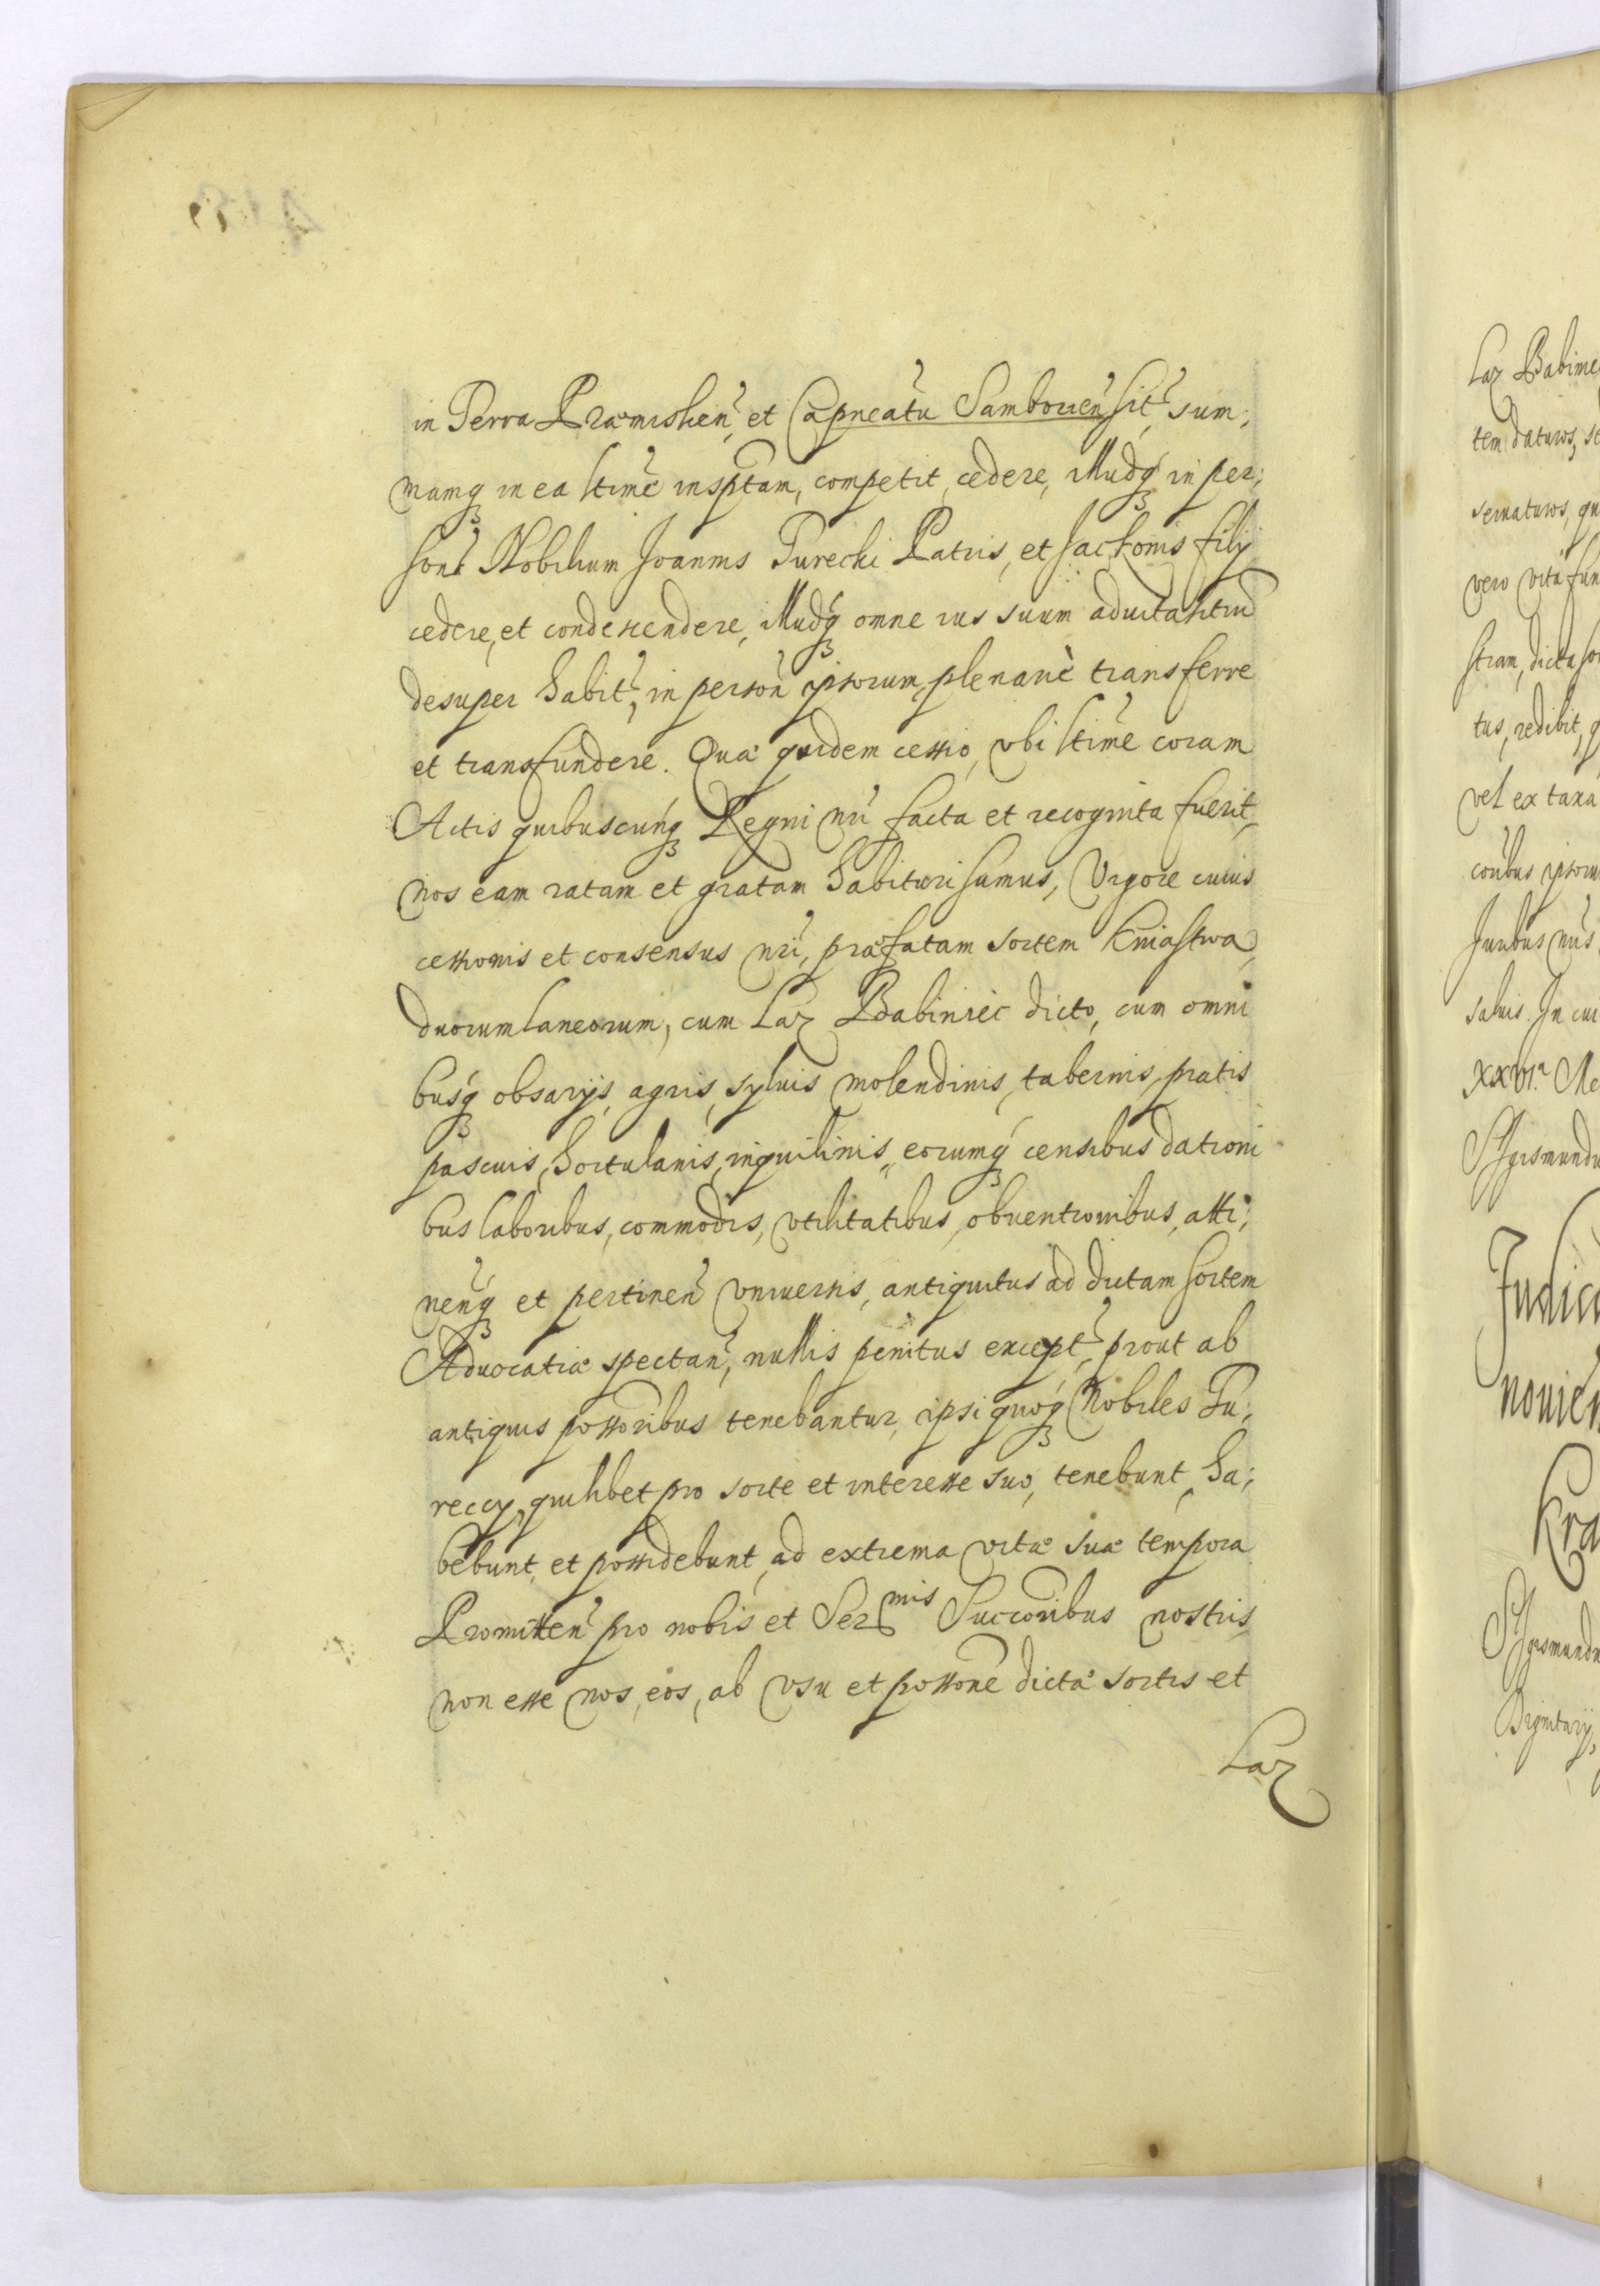 in Terra Præmislien̄, et Capneatu Samborien̄ sit̄, sum;
mamq₃ in ea ltime insptam, competit, cedere, illudq₃ in per;
son̄ Nobilium Joannis Turecki Patris, et Jackonis filij
cedere, et condescendere, illudq₃ omne ius suum aduitalitiū
desuper habit̄, in person̄ ipsorum plenariè transferre
et transfundere. Quæ quidem cessio, vbi ltime coram
Actis quibuscunq₃ Regni nr̄i facta et recognita fuerit,
nos eam ratam et gratam habituri sumus, Vigore cuius
cessionis et consensus nr̄i, præfatam sortem Kniastwa,
duorum laneorum, cum Laz Babiniec dicto, cum omni
busq₃ obsarijs, agris, syluis molendinis, tabernis, pratis
pascuis, hortulanis, inquilinis, eorumq₃ censibus dationi
bus laboribus, commodis, vtilitatibus, obuentionibus, atti;
nen̄q₃ et pertinen̄ vniuersis, antiquitus ad dictam sortem
Aduocatiæ spectan̄, nullis penitus except̄, prout ab
antiquis possoribus tenebantur, ipsi quoq₃ Nobiles Tu;
reccy, quilibet pro sorte et interesse suo, tenebunt, ha;
bebunt, et possidebunt, ad extrema vitæ suæ tempora
Promitten̄ pro nobis et Ser^mis Succoribus nostris
non esse nos, eos, ab vsu et possone dictæ sortis et
Laz
Laz Babinie
tem daturos, 
seruaturos, qu
vero vitâ fun
stram, dicta so
tus, redibit, q
vel ex taxa
coribus ipsoru
Juribus nr̄is
saluis. In cui
XXVI^a Me
Sigismundu
Judic
nouien
Kra
Sigismundu
Dignitarij,